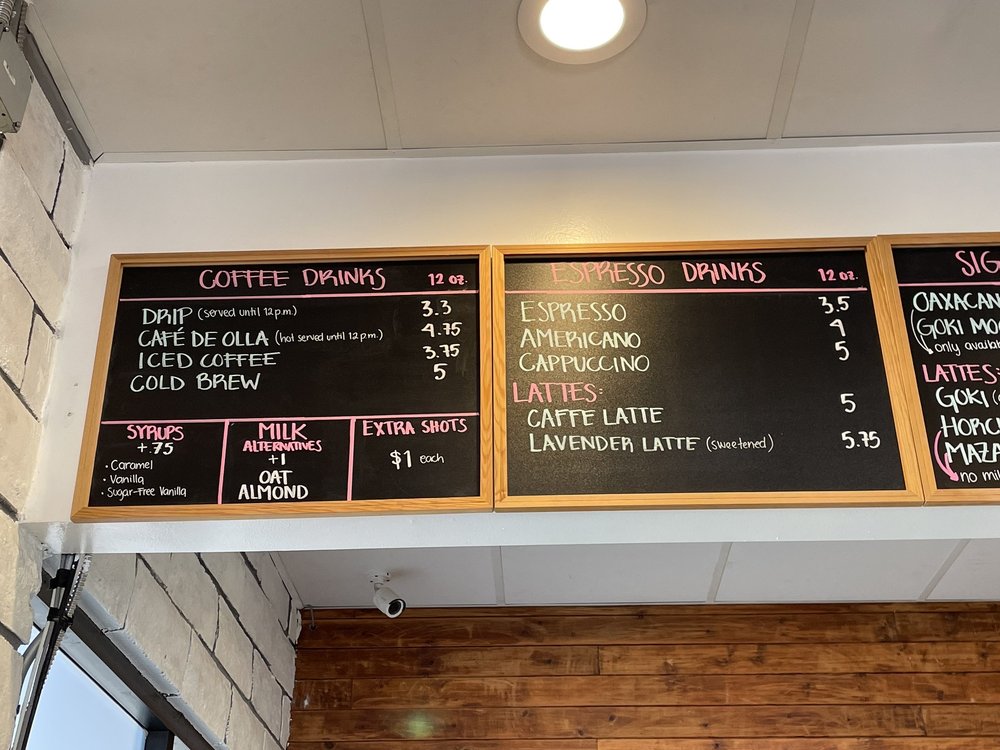 COFFEE DRINKS 12 oz.
DRIP (served until 12p.m.) 3.3
CAFÉ DE OLLA (hot served until 12p.m.) 4.75
ICED COFFEE 3.75
COLD BREW 5
SYRUPS
+.75
• Caramel
• Vanilla
• Sugar-Free Vanilla
MILK
ALTERNATIVES
+1
OAT
ALMOND
EXTRA SHOTS
$1 each
ESPRESSO DRINKS 12 oz.
ESPRESSO 3.5
AMERICANO 4
CAPPUCCINO 5
LATTES:
CAFFE LATTE 5
LAVENDER LATTE (sweetened) 5.75
SIG
OAXACAN
GOKI MO
only availab
LATTES:
GOKI (
HORC
MAZA
no mil